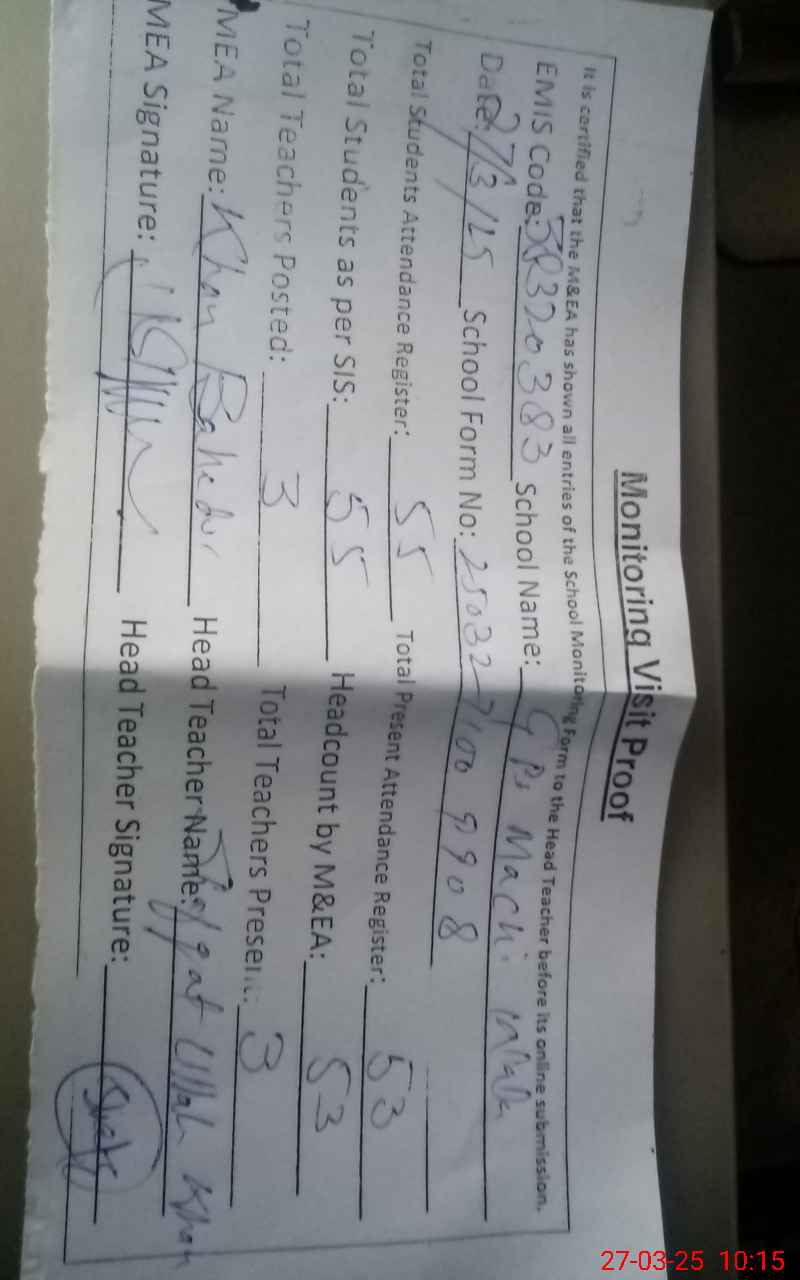 Monitoring Visit Proof
It is certified that the M&EA has shown all entries of the School Monitoring Form to the Head Teacher before its online submission.
EMIS Code: 38320383 School Name: GPS Machi
Date: 27/3/25 School Form No: 250327100 9908
Total Students Attendance Register: 55 Total Present Attendance Register: 53
Total Students as per SIS: 55 Headcount by M&EA: 53
Total Teachers Posted: 3 Total Teachers Present: 3
MEA Name: Khan Bahadur Head Teacher Name: Ullah Khan
MEA Signature: Head Teacher Signature:
27-03-25 10:15